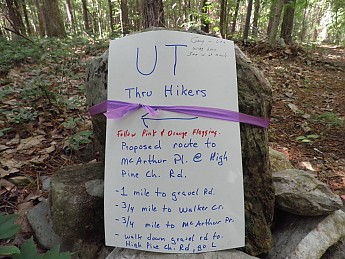 UT
Thru Hikers
Follow Pink & Orange Flagging.
Proposed route to
McArthur Pl. @ High
Pine Ch. Rd.
- 1 mile to gravel Rd.
- 3/4 mile to Walker Cr.
- 3/4 mile to McArthur Pr.
- walk down gravel rd to
High Pine Ch Rd, go L